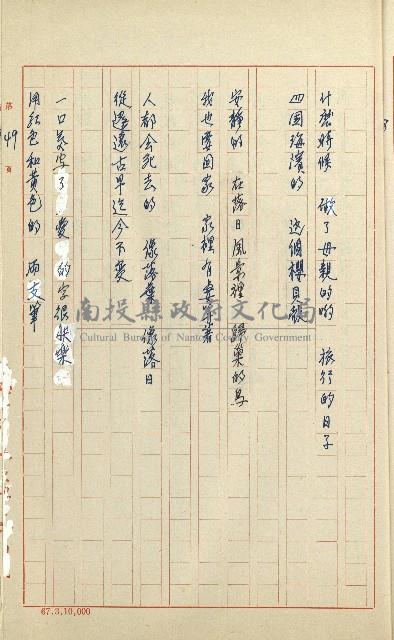 什麼時候 做了母親的喲 旅行的日子
四国海濱的 这個櫻貝殼
安靜的 在落日風景裡 歸巢的鳥
我也要回家 家裡有妻等著
人都会死去的 像落葉 像落日
從遙遠古早迄今不变
一口气写了 愛 的字很快樂
用紅色和黃色的 兩支筆
第 49 頁
南投縣政府文化局
Cultural Bureau of Nantou County Government
67.3.10,000